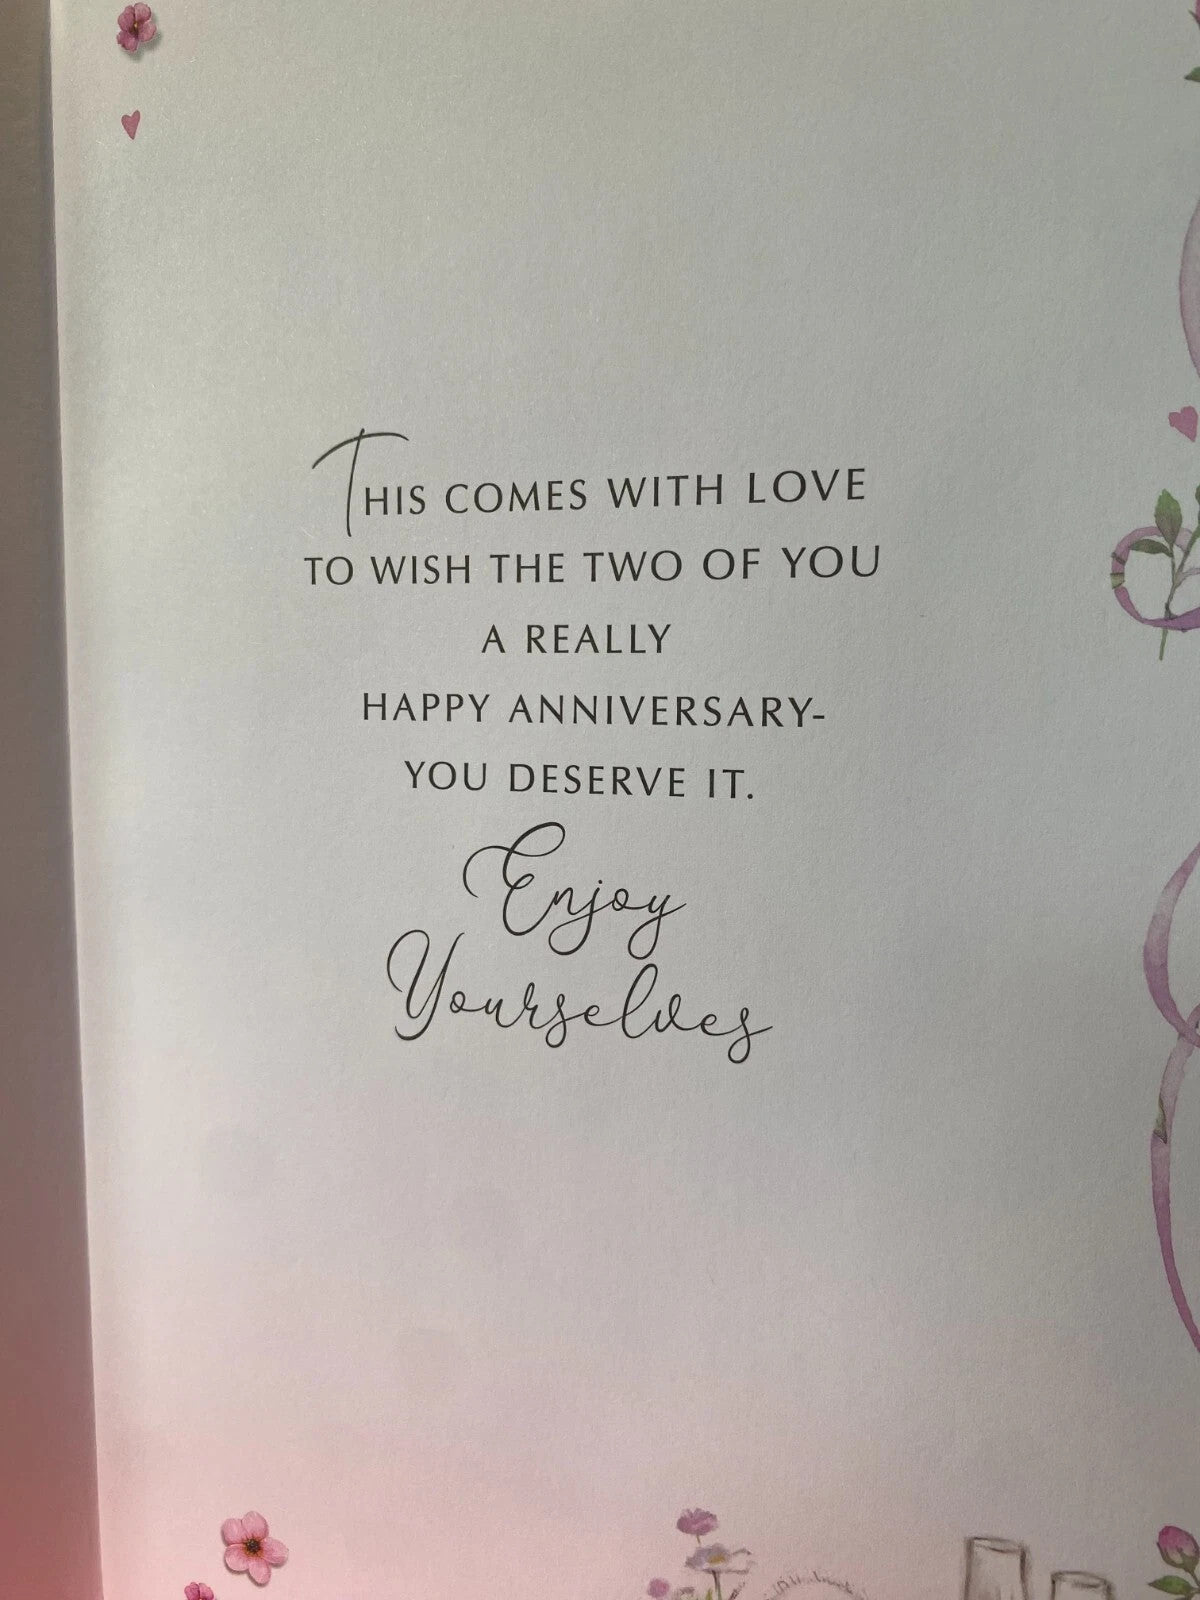 THIS COMES WITH LOVE
TO WISH THE TWO OF YOU
A REALLY
HAPPY ANNIVERSARY-
YOU DESERVE IT.
Enjoy
Yourselves